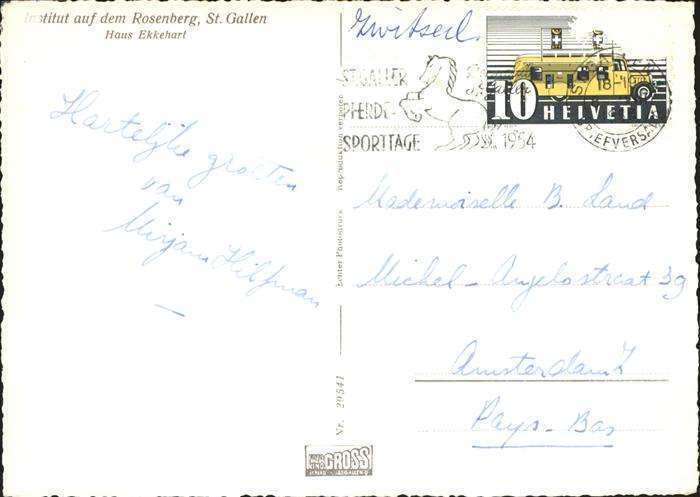 Institut auf dem Rosenberg, St. Gallen
Haus Ekkehart
Hartelijke groeten
van
Mirjam Hilfman
Zwitserl.
ST. GALLER
PFERDE-
SPORTTAGE
1954
10 HELVETIA
BRIEFVERSAND
18
Mademoiselle B. Land
Michel-Angelostraat 39
Amsterdam Z
Pays-Bas
Echter Photodruck Reproduktion verboten
Nr. 20541
GROSS